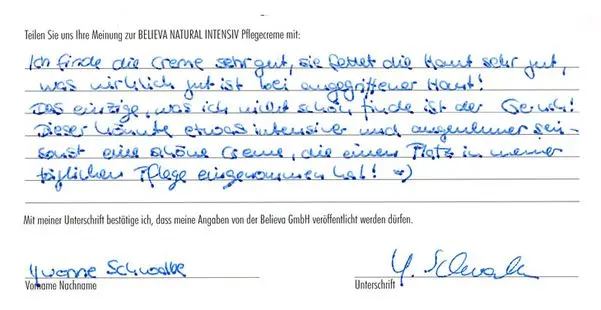 Teilen Sie uns Ihre Meinung zur BELIEVA NATURAL INTENSIV Pflegecreme mit:
Ich finde die Creme sehr gut, sie fettet die Haut sehr gut,
was wirklich gut ist bei angegriffener Haut!
Das einzige, was ich nicht schön finde ist der Geruch!
Dieser könnte etwas intensiver und angenehmer sein -
sonst eine schöne Creme, die einen Platz in meiner
täglichen Pflege eingenommen hat! :-)
Mit meiner Unterschrift bestätige ich, dass meine Angaben von der Believa GmbH veröffentlicht werden dürfen.
Yvonne Schwalbe Y. Schwalbe
Vorname Nachname Unterschrift